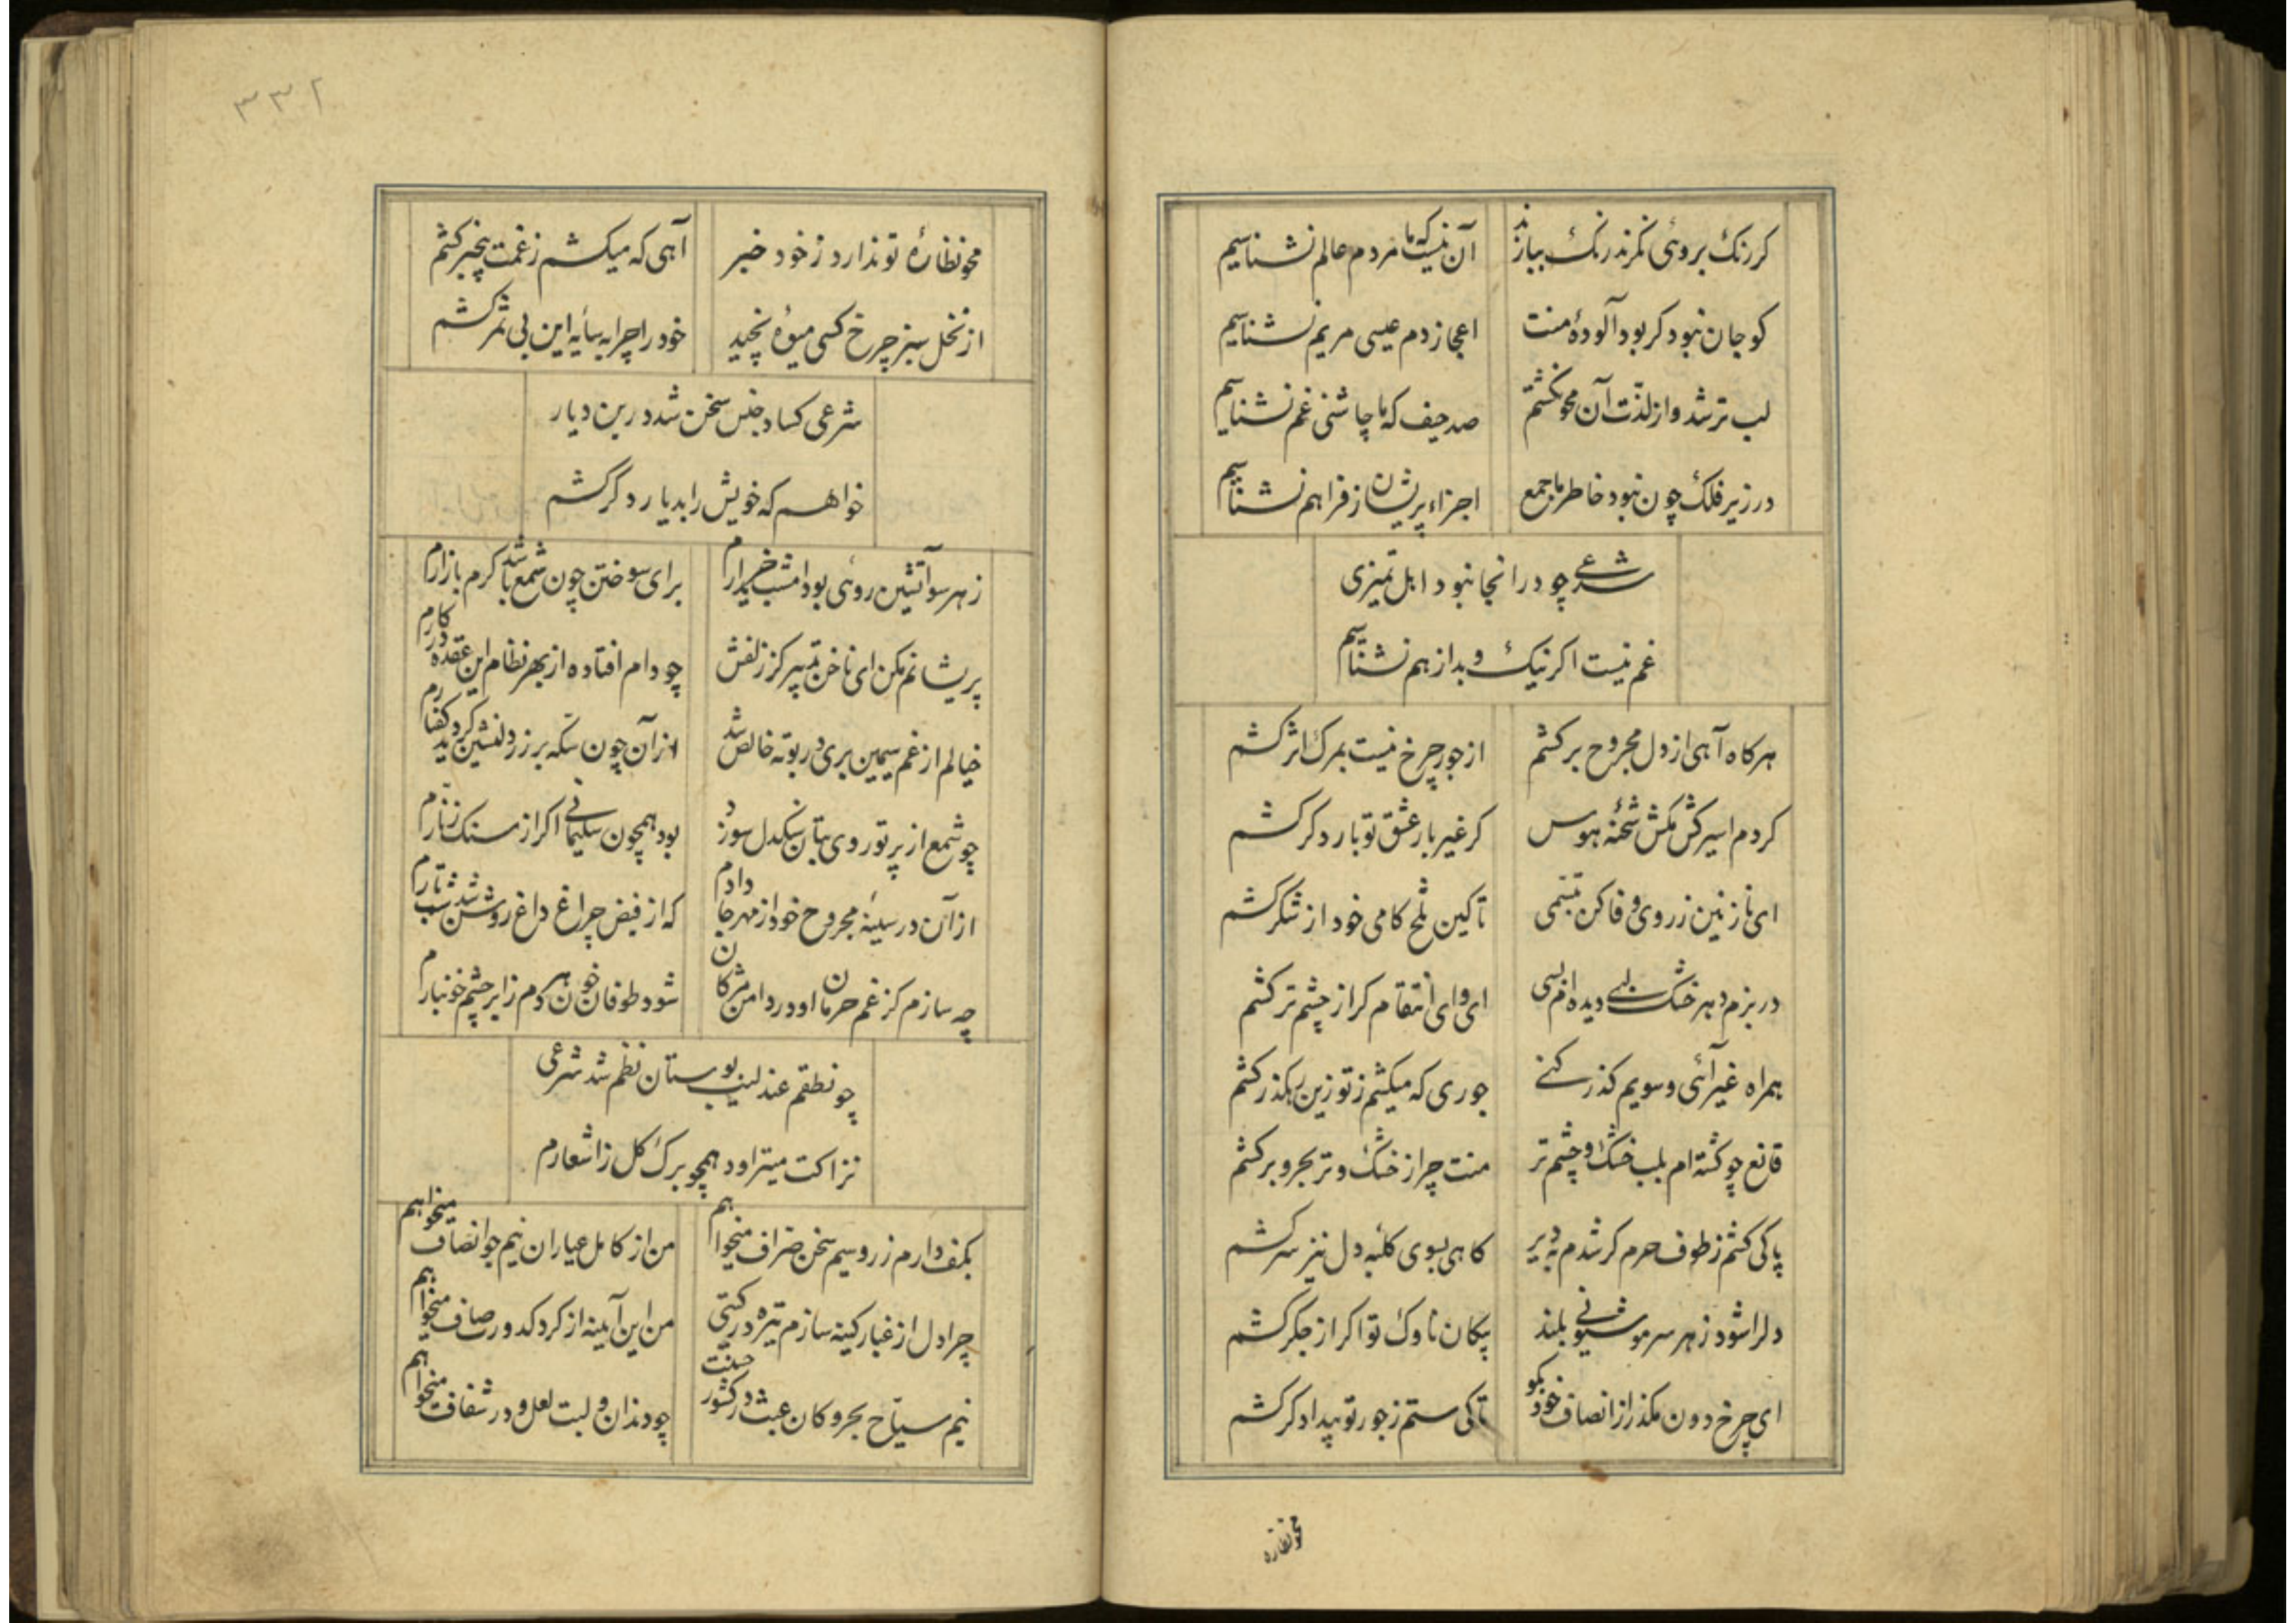 کر رنک بروئی نمرند رنک ببازند آن نیست که ما مردم عالم نشناسیم
کو جان نبود کر بود آلودهٔ منت اعجاز دم عیسی مریم نشناسیم
لب تر شد و از لذت آن محو نکشتم صد حیف که ما چاشنی غم نشناسیم
در زیر فلک چون نبود خاطر ما جمع اجزاء پریشان ز فراهم نشناسیم
شرعی چو در انجا نبود اهل تمیزی
غم نیست اکر نیک و بد از هم نشناسیم
هرکاه آهی از دل مجروح برکشم از جور چرخ نیست بمرک اثر کشم
کردم اسیر کش مکش شحنهٔ هوس کر غیر بار عشق تو بار دکر کشم
ای نازنین ز روی وفا کن تبسمی تا کین تلخ کامی خود از شکر کشم
در بزم دهر خشک لبی دیده ام بسی ای وای انتقام کر از چشم تر کشم
همراه غیر آئی و سویم کذر کنی جوری که میکشم ز تو زین رهکذر کشم
قانع چو کشته ام بلب خشک و چشم تر منت چرا ز خشک و تر بحر و بر کشم
پا کی کشم ز طوف حرم کر شدم به دیر کاهی بسوی کلبهٔ دل نیز سر کشم
دلرا شود ز هر سر مو شیونی بلند پیکان ناوک تو اکر از جکر کشم
ای چرخ دون مکذر از انصاف خود بکو تا کی ستم ز جور تو بیدادکر کشم
محو نظاره
۳۳۲
محو نظارهٔ تو ندارد ز خود خبر آهی که میکشم ز غمت بیخبر کشم
از نخل سبز چرخ کسی میوهٔ نچید خود را چرا به سایه این بی ثمر کشم
شرعی کساد جنس سخن شد درین دیار
خواهم که خویش را بدیار دکر کشم
ز هر سو آتشین روئی بود امشب خریدارم برای سوختن چون شمع باشد کرم بازارم
پریشانم مکن ای ناخن تدبیر کز زلفش چو دام افتاده از بهر نظام این عقده در کارم
خیالم از غم سیمین بری در بوته خالص شد از آن چون سکه بر زر دلنشین کردید کفتارم
چو شمع از پرتو روی بتان سنکدل سوزد بود همچون سلیمانی اکر از سنک زنارم
از آن در سینهٔ مجروح خود از مهر جا دادم که از فیض چراغ داغ روشن شد شب تارم
چه سازم کز غم حرمان او در دامن مژکان شود طوفان خون هر دم ز ابر چشم خونبارم
چو نطقم عندلیب بوستان نظم شد شرعی
نزاکت میتراود همچو برک کل ز اشعارم
بکف دارم زر و سیم سخن صراف میخواهم من از کامل عیاران نیم جو انصاف میخواهم
چرا دل از غبار کینه سازم تیره در کیتی من این آیینه از کرد کدورت صاف میخواهم
نیم سیاح بحر و کان عبث در کشور حسنت چو دندان و لبت لعل و در شفاف میخواهم